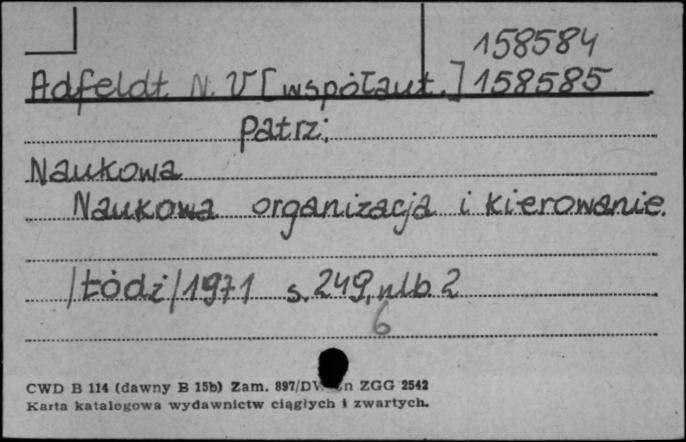 158584
Adfeldt N. V [współaut.] 158585
Patrz:
Naukowa
Naukowa organizacja i kierowanie.
/Łódź/ 1971 s. 249, nlb. 2
6
CWD B 114 (dawny B 15b) Zam. 897/ ZGG 2542
Karta katalogowa wydawnictw ciągłych i zwartych.